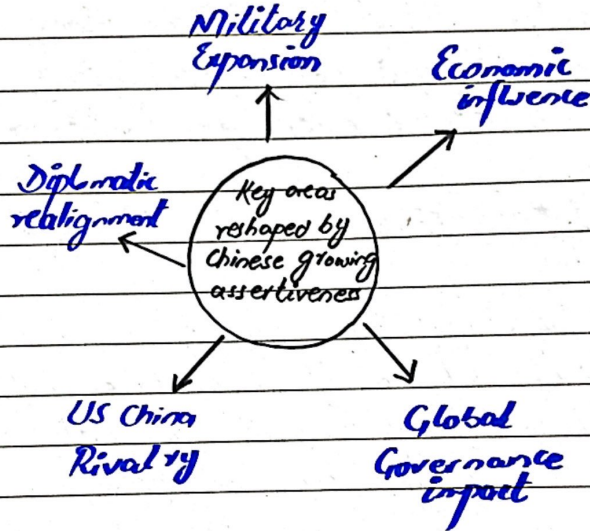 Military
Expansion
Economic
influence
Diplomatic
realignment
Key areas
reshaped by
Chinese growing
assertiveness
US China
Rivalry
Global
Governance
impact